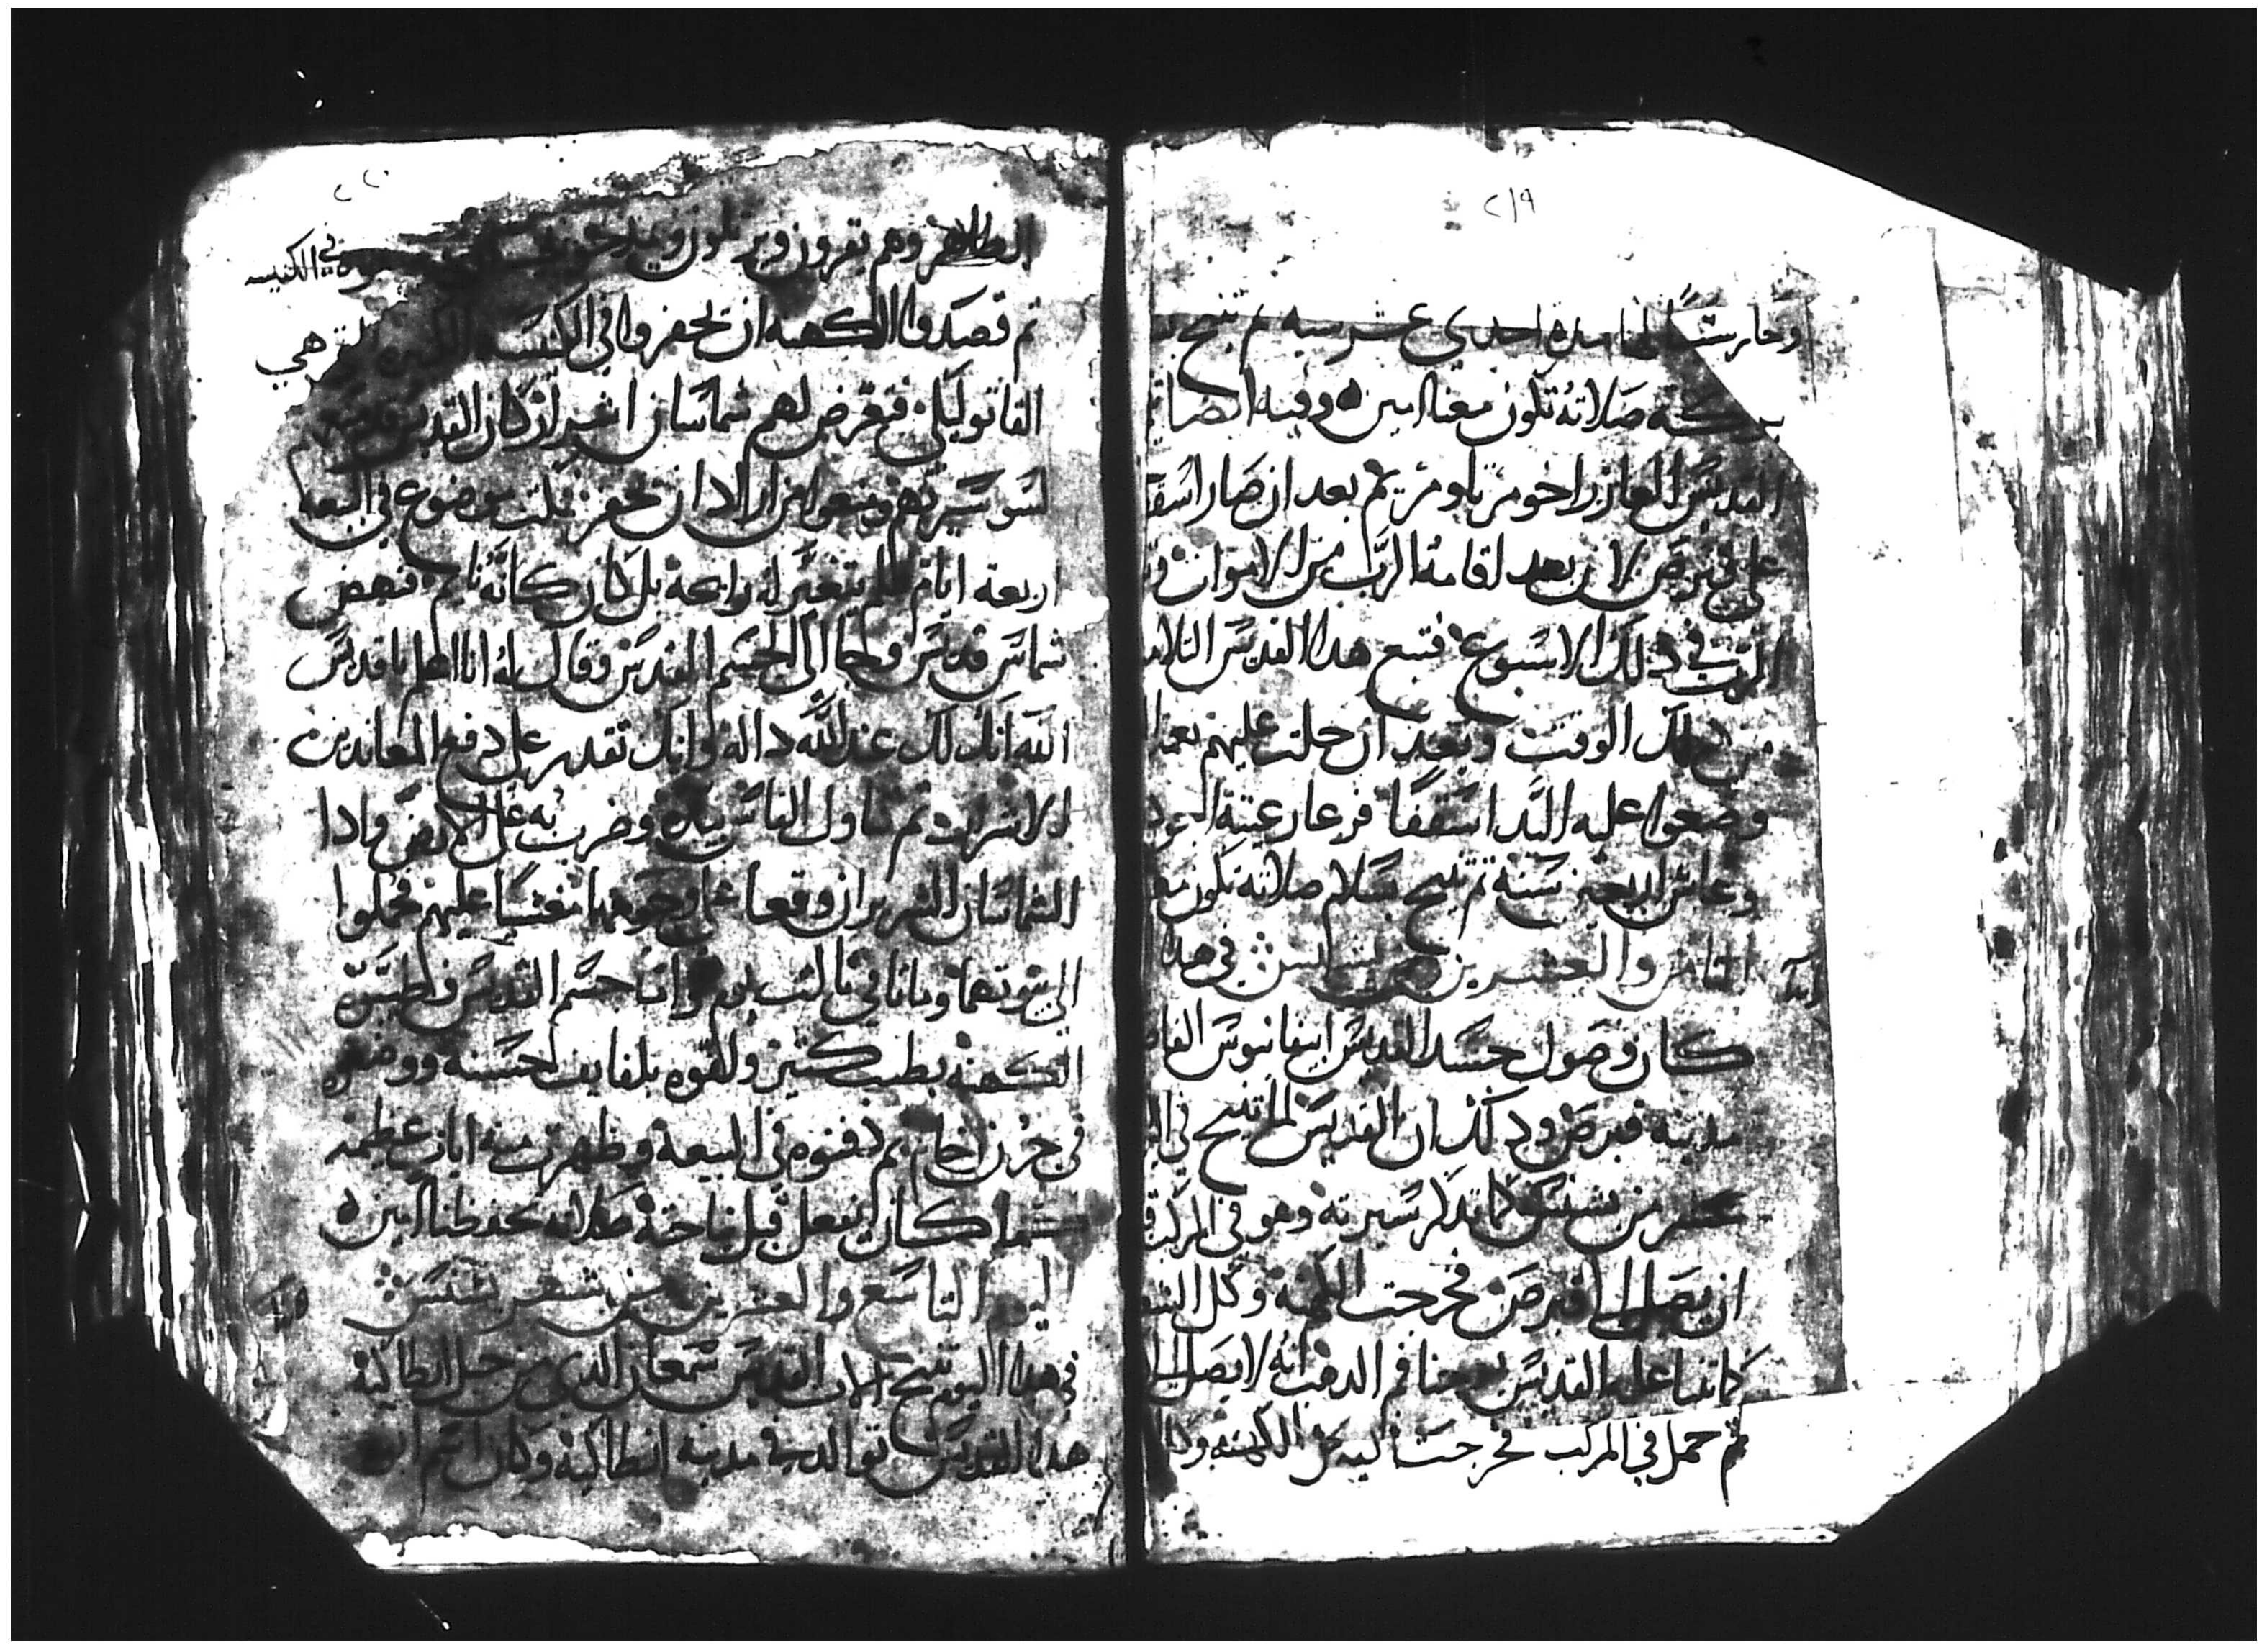 ٢١٩
وحارسًا لها مده احدي عشر سنه ثم تنيح
بركة صلاته تكون معنا امين وفيه ايضا
القديس العازر اخو مرتا ومريم بعد ان صار اسقف
علي قبرص لان بعد اقامة الرب من الاموات
الرب في ذلك الاسبوع فتبع هذا القديس التلا
من ذلك الوقت وبعد ان حلت عليهم نعمة
وضعوا عليه اليد اسقفًا فرعا رعيته
وعاش اربعين سنة ثم تنيح بسلام صلاته تكون مع
الثامن والعشرين من بشنس في هذا
كان وصول جسد القديس ابيفانيوس
مدينه قبرص وذلك ان القديس لما تنيح في
عشر من بشنس كما تذكر سيرته وهو في المركب
ان يصل الي قبرص فخرجت الكهنة وكل الشعب
كاتبا علي القديس يوحنا فم الدهب انه لا يصل
ثم حمل في المركب فخرجت اليه كل الكهنه
٢٢٠
الطاهر وهم يقرون ويرتلون في الكنيسه
ثم قصدوا الكهنه ان يحفروا في الكنيسه الكبيره التي هي
القاتوليكي فتعرض لهم شماسان اشرار كان القديس
لسو سيرتهم ومنعوا من اراد ان يحفر فلبث موضوع في البيعه
اربعة ايام لم يتغير له رايحة بل كان كانه نايم فنهض
شماس قديس وجا الي الجسم المقدس وقال له انا اعلم يا قديس
الله انك لك عند الله دالة وانك تقدر علي دفع المعاندين
الاشرار ثم تناول الفاس بيده وضرب به علي الارض واذا
الشماسان الشريران وقعا علي وجوههما مغشيا عليهم فحملوا
الي بيوتهما وماتا في ثالث يوم واما جسم القديس فطيبوه
الكهنه بطيب كتير ولفوه بلفايف حسنه ووضعوه
في جرن رخام ثم دفنوه في البيعة وظهرت منه ايات عظيمه
كما كان يفعل قبل نياحته صلاته تحفظنا امين
اليوم التاسع والعشرين من شهر بشنس
في هذا اليوم تنيح الاب القديس سمعان الذي من جبل انطاكية
هذا القديس توالد في مدينه انطاكية وكان اسم ابيه